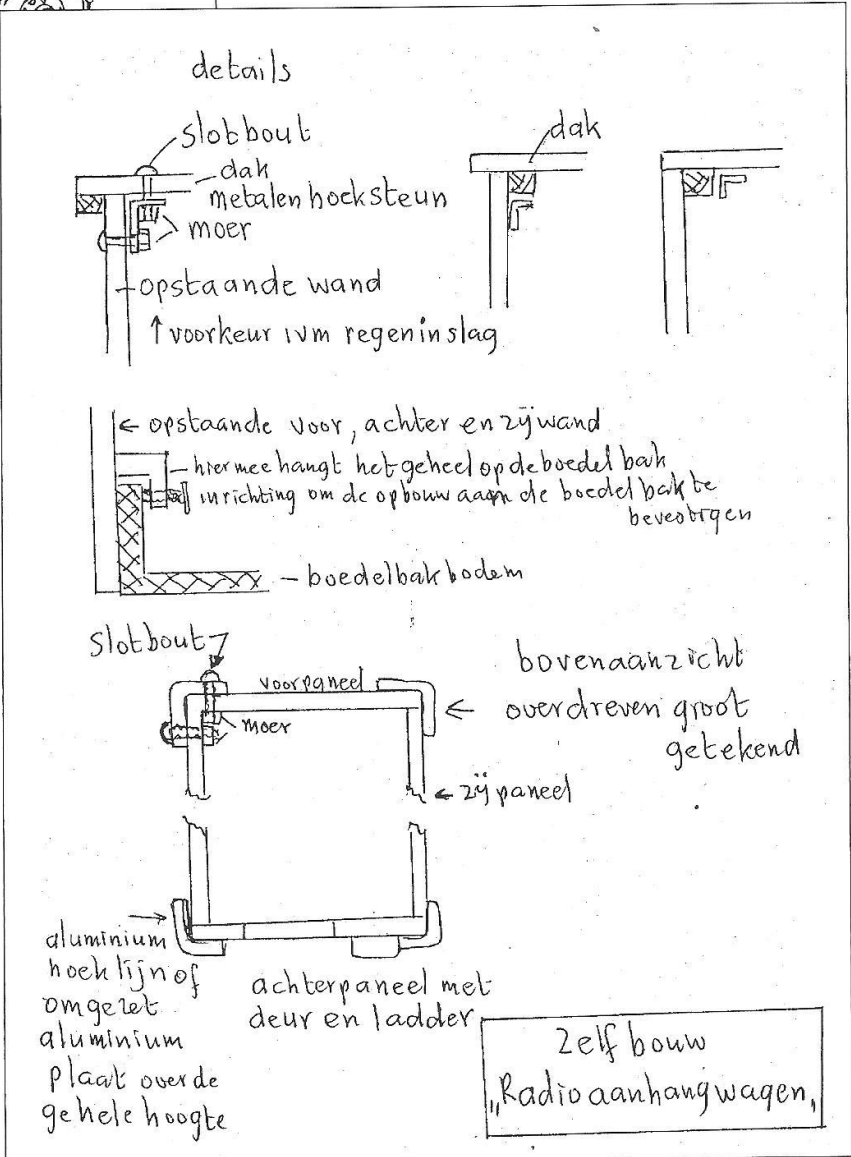 details
slotbout
dak
metalen hoeksteun
moer
opstaande wand
↑ voorkeur ivm regeninslag
dak
← opstaande voor, achter en zijwand
hiermee hangt het geheel op de boedelbak
inrichting om de opbouw aan de boedelbak te
boedelbakbodem
slotbout
voorpaneel
moer
bovenaanzicht
← overdreven groot
getekend
← zijpaneel
aluminium
hoeklijn of
omgezet
aluminium
plaat over de
gehele hoogte
achterpaneel met
deur en ladder
Zelfbouw
„Radioaanhangwagen„